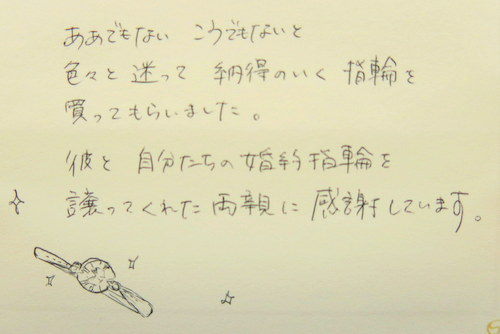 ああでもない こうでもないと
色々と 迷って 納得のいく 指輪を
買ってもらいました。
彼と 自分たちの婚約指輪を
譲ってくれた両親に 感謝しています。